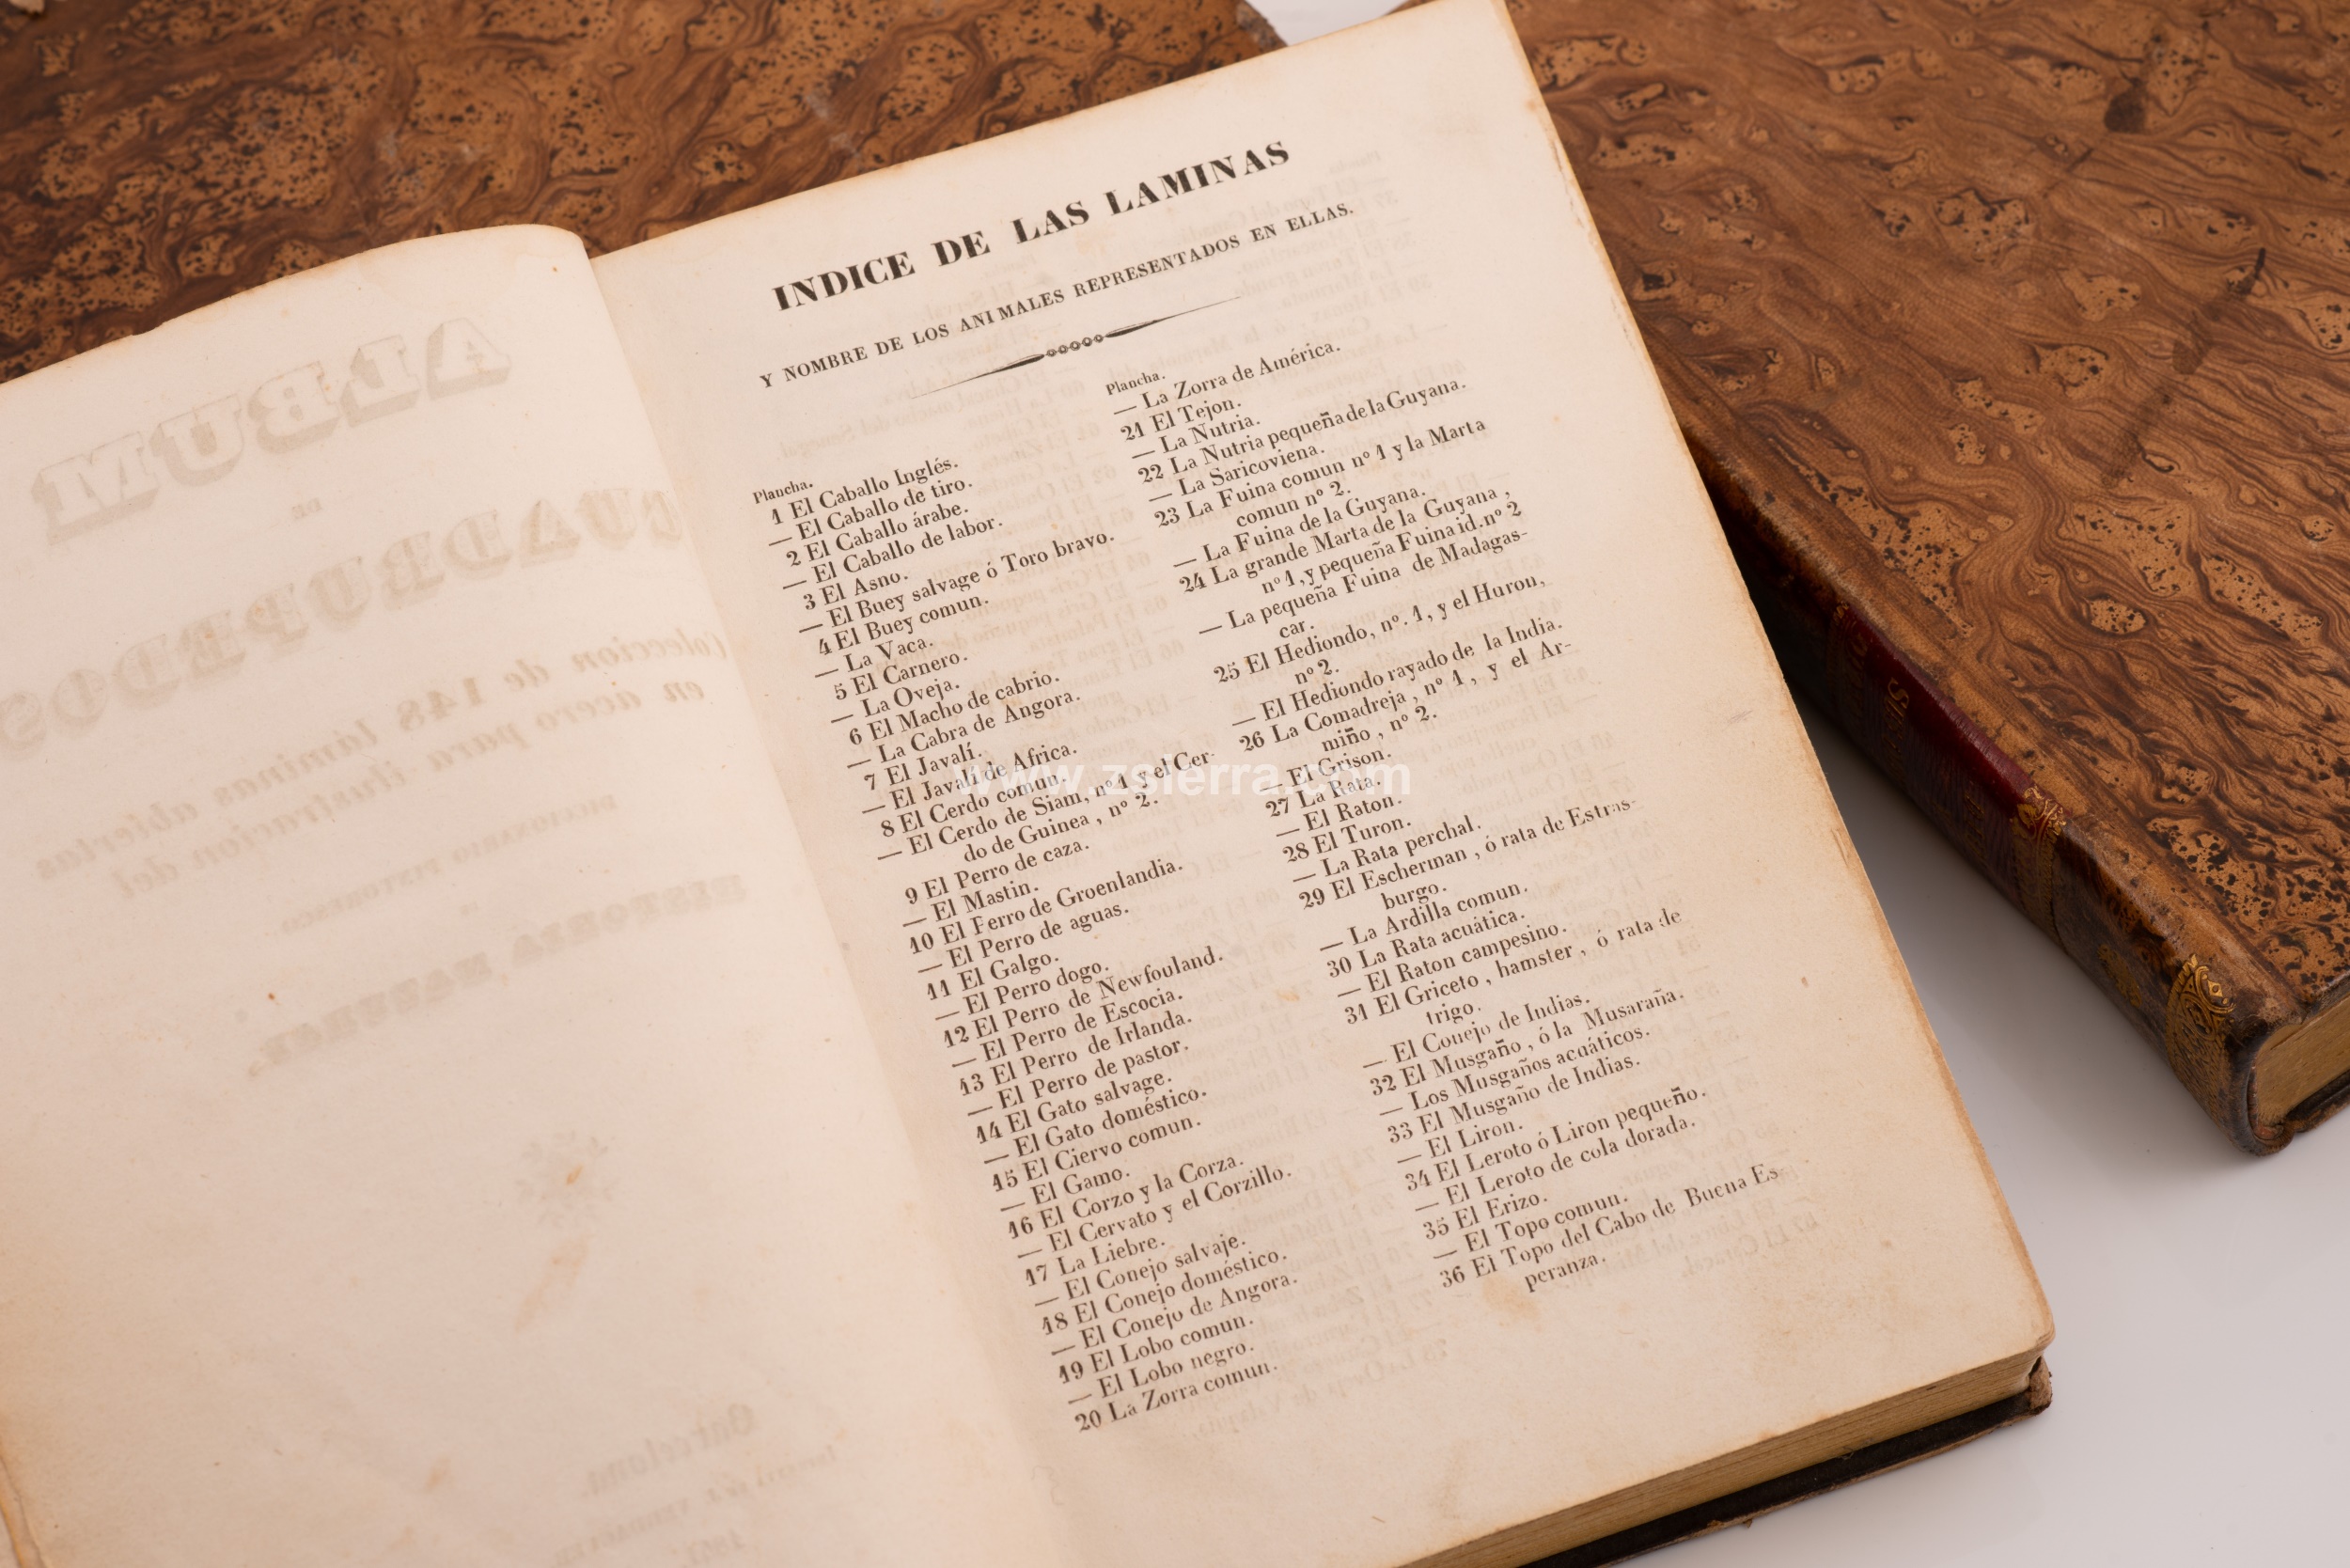 INDICE DE LAS LAMINAS
Y NOMBRE DE LOS ANIMALES REPRESENTADOS EN ELLAS.
Plancha.
1 El Caballo Inglés.
— El Caballo de tiro.
2 El Caballo árabe.
— El Caballo de labor.
3 El Asno.
— El Buey salvage ó Toro bravo.
4 El Buey comun.
— La Vaca.
5 El Carnero.
— La Oveja.
6 El Macho de cabrio.
— La Cabra de Angora.
7 El Javalí.
— El Javalí de Africa.
8 El Cerdo comun.
— El Cerdo de Siam, nº 1 y el Cer-
do de Guinea, nº 2.
9 El Perro de caza.
— El Mastin.
10 El Perro de Groenlandia.
— El Perro de aguas.
11 El Galgo.
— El Perro dogo.
12 El Perro de Newfouland.
— El Perro de Escocia.
13 El Perro de Irlanda.
— El Perro de pastor.
14 El Gato salvage.
— El Gato doméstico.
15 El Ciervo comun.
— El Gamo.
16 El Corzo y la Corza.
— El Cervato y el Corzillo.
17 La Liebre.
— El Conejo salvaje.
18 El Conejo doméstico.
— El Conejo de Angora.
19 El Lobo comun.
— El Lobo negro.
20 La Zorra comun.
Plancha.
— La Zorra de América.
21 El Tejon.
— La Nutria.
22 La Nutria pequeña de la Guyana.
— La Saricoviena.
23 La Fuina comun nº 1 y la Marta
comun nº 2.
— La Fuina de la Guyana.
24 La grande Marta de la Guyana,
nº 1, y pequeña Fuina id. nº 2
— La pequeña Fuina de Madagas-
car.
25 El Hediondo, nº. 1, y el Huron,
nº 2.
— El Hediondo rayado de la India.
26 La Comadreja, nº 1, y el Ar-
miño, nº 2.
— El Grison.
27 La Rata.
— El Raton.
28 El Turon.
— La Rata perchal.
29 El Escherman, ó rata de Estras-
burgo.
— La Ardilla comun.
30 La Rata acuática.
— El Raton campesino.
31 El Griceto, hamster, ó rata de
trigo.
— El Conejo de Indias.
32 El Musgaño, ó la Musaraña.
— Los Musgaños acuáticos.
33 El Musgaño de Indias.
— El Liron.
34 El Leroto ó Liron pequeño.
— El Leroto de cola dorada.
35 El Erizo.
— El Topo comun.
36 El Topo del Cabo de Buena Es
peranza.
www.zsierra.com